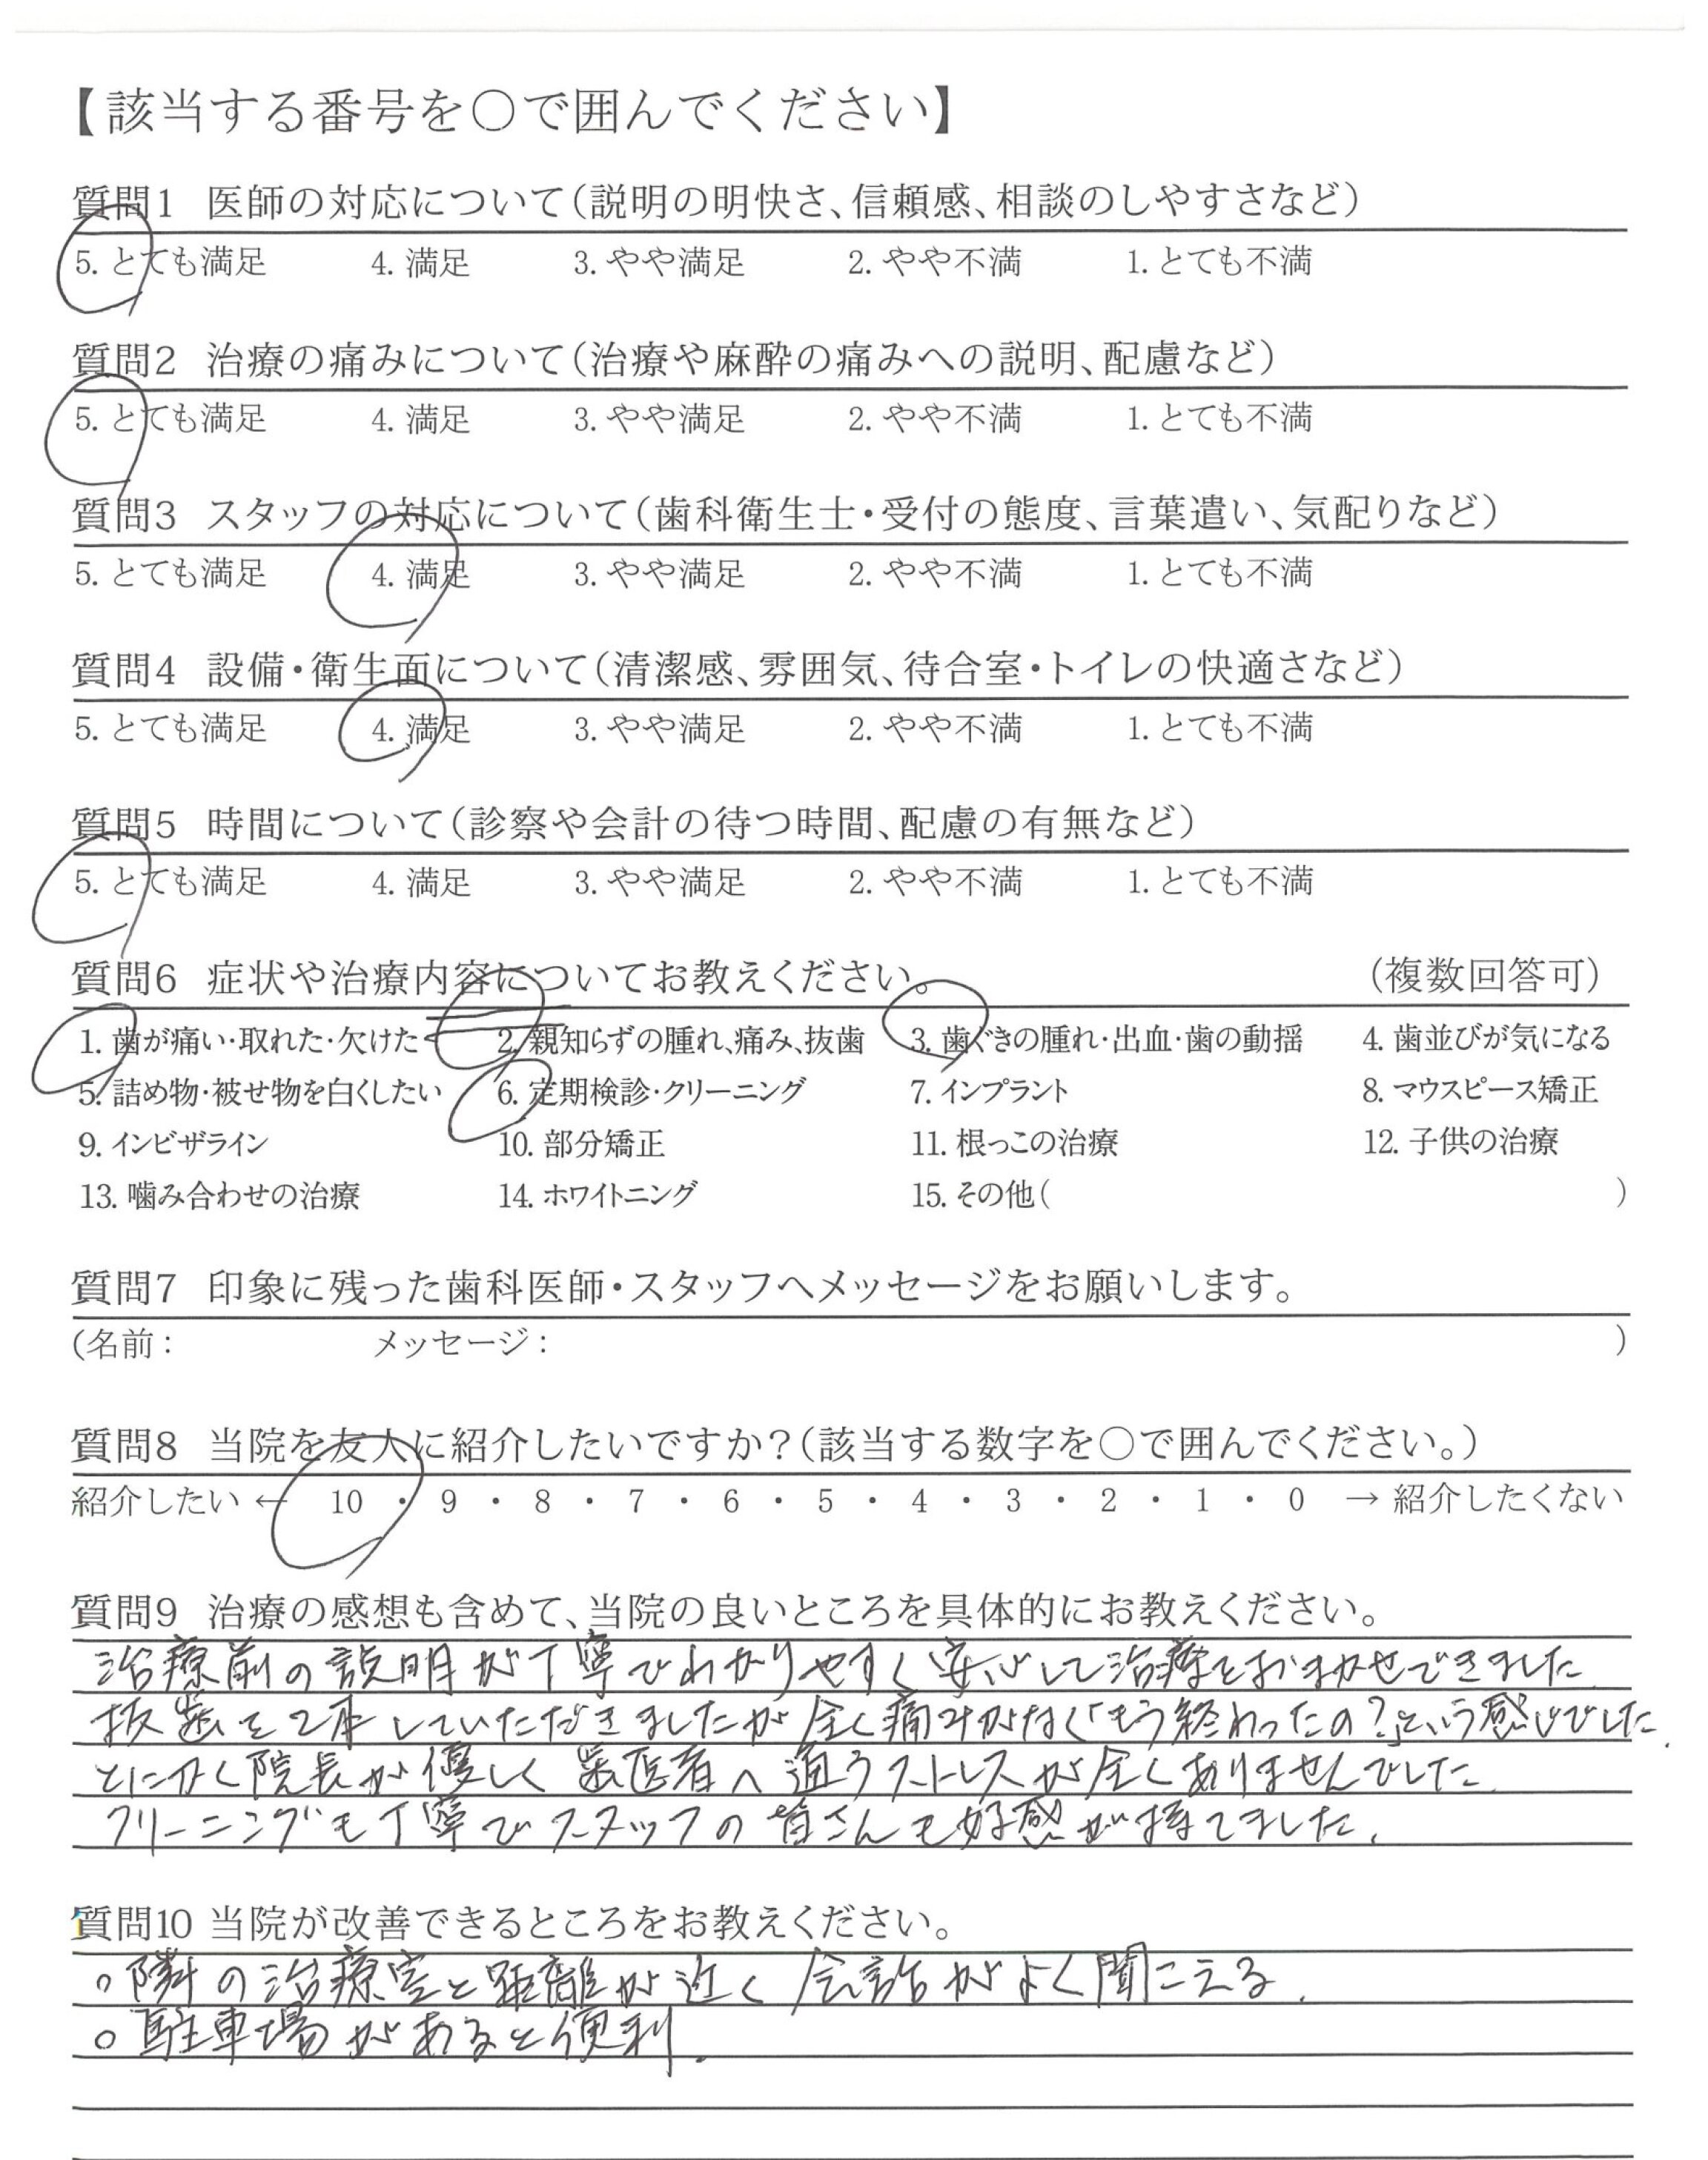 【該当する番号を○で囲んでください】
質問1 医師の対応について(説明の明快さ、信頼感、相談のしやすさなど)
5. とても満足 4. 満足 3. やや満足 2. やや不満 1. とても不満
質問2 治療の痛みについて(治療や麻酔の痛みへの説明、配慮など)
5. とても満足 4. 満足 3. やや満足 2. やや不満 1. とても不満
質問3 スタッフの対応について(歯科衛生士・受付の態度、言葉遣い、気配りなど)
5. とても満足 4. 満足 3. やや満足 2. やや不満 1. とても不満
質問4 設備・衛生面について(清潔感、雰囲気、待合室・トイレの快適さなど)
5. とても満足 4. 満足 3. やや満足 2. やや不満 1. とても不満
質問5 時間について(診察や会計の待つ時間、配慮の有無など)
5. とても満足 4. 満足 3. やや満足 2. やや不満 1. とても不満
質問6 症状や治療内容についてお教えください。 (複数回答可)
1. 歯が痛い・取れた・欠けた 2. 親知らずの腫れ、痛み、抜歯 3. 歯ぐきの腫れ・出血・歯の動揺 4. 歯並びが気になる
5. 詰め物・被せ物を白くしたい 6. 定期検診・クリーニング 7. インプラント 8. マウスピース矯正
9. インビザライン 10. 部分矯正 11. 根っこの治療 12. 子供の治療
13. 噛み合わせの治療 14. ホワイトニング 15. その他( )
質問7 印象に残った歯科医師・スタッフへメッセージをお願いします。
(名前: メッセージ: )
質問8 当院を友人に紹介したいですか?(該当する数字を○で囲んでください。)
紹介したい ← 10 ・ 9 ・ 8 ・ 7 ・ 6 ・ 5 ・ 4 ・ 3 ・ 2 ・ 1 ・ 0 → 紹介したくない
質問9 治療の感想も含めて、当院の良いところを具体的にお教えください。
治療前の説明が丁寧でわかりやすく安心して治療をおまかせできました.
抜歯を2本していただきましたが全く痛みがなく「もう終わったの?」という感じでした.
とにかく院長が優しく歯医者へ通うストレスが全くありませんでした.
クリーニングも丁寧でスタッフの皆さんも好感が持てました.
質問10 当院が改善できるところをお教えください。
○隣の治療室と距離が近く会話がよく聞こえる.
○駐車場があると便利.